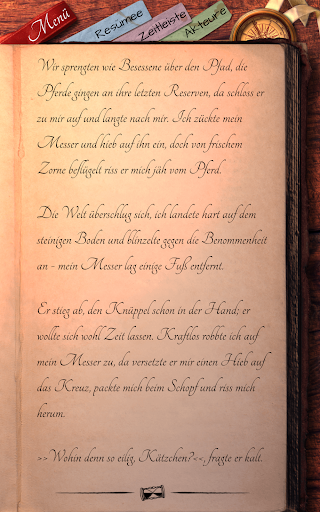 Menü
Resumee
Zeitleiste
Akteure
Wir sprengten wie Besessene über den Pfad, die
Pferde gingen an ihre letzten Reserven, da schloss er
zu mir auf und langte nach mir. Ich zückte mein
Messer und hieb auf ihn ein, doch von frischem
Zorne beflügelt riss er mich jäh vom Pferd.
Die Welt überschlug sich, ich landete hart auf dem
steinigen Boden und blinzelte gegen die Benommenheit
an - mein Messer lag einige Fuß entfernt.
Er stieg ab, den Knüppel schon in der Hand; er
wollte sich wohl Zeit lassen. Kraftlos robbte ich auf
mein Messer zu, da versetzte er mir einen Hieb auf
das Kreuz, packte mich beim Schopf und riss mich
herum.
>> Wohin denn so eilig, Kätzchen?<<, fragte er kalt.